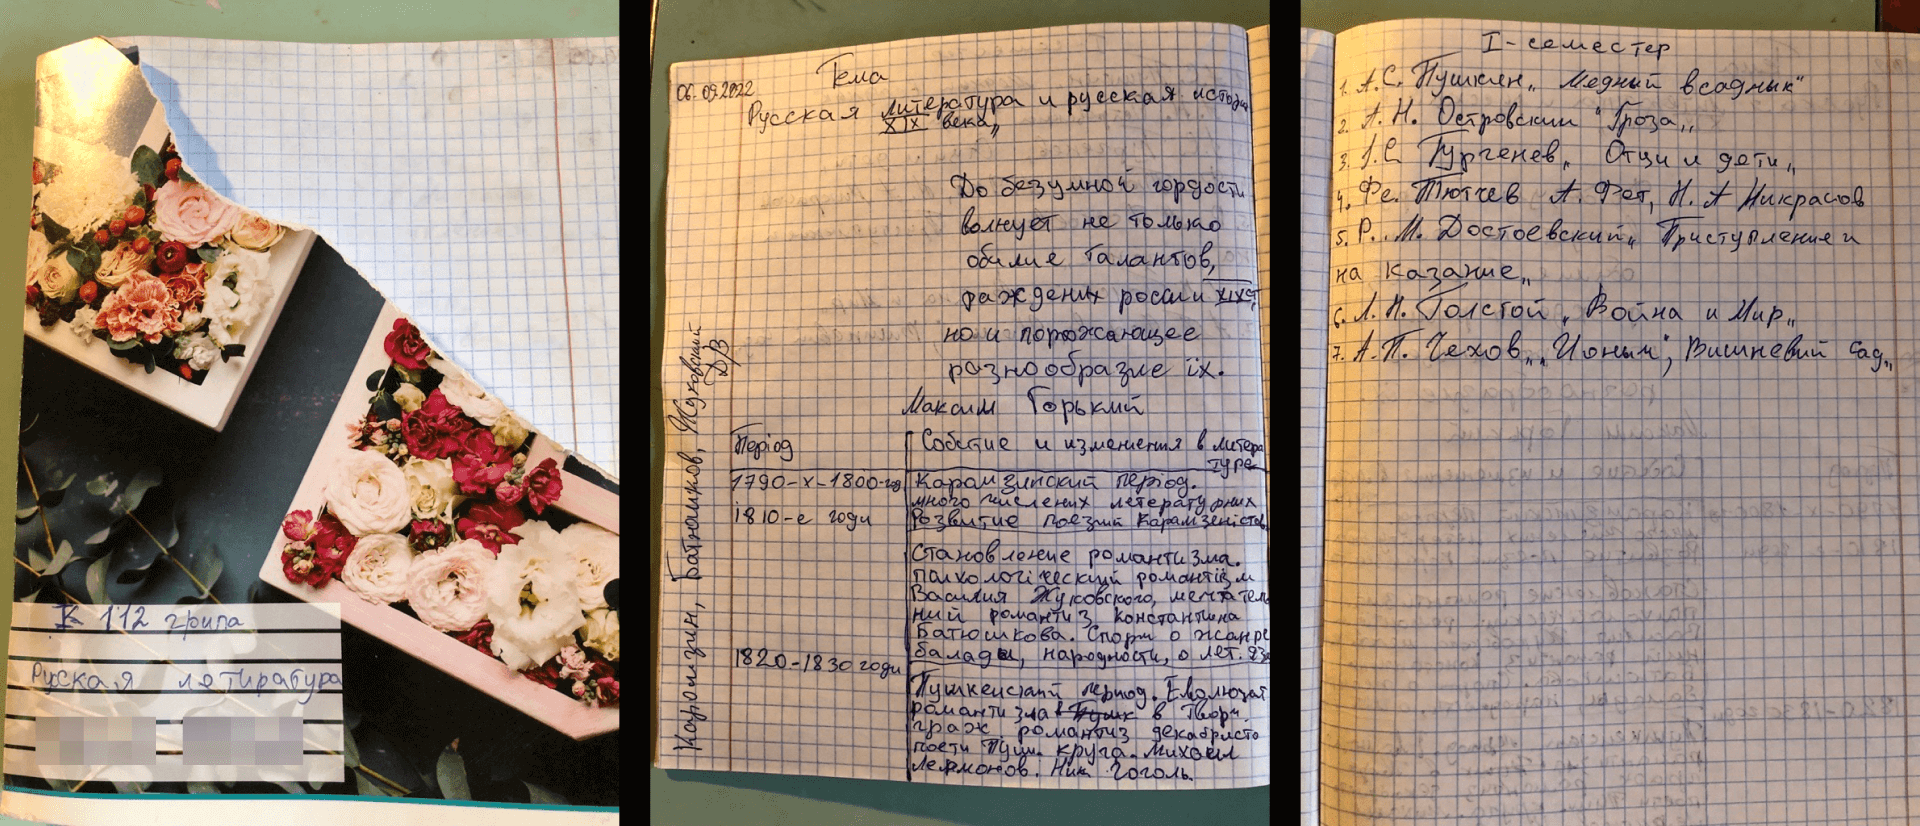 I-112 група
Руская летиратура
06.09.2022
Тема
Русская литература и русская истори
XIX века„
До безумной гордости
волнует не только
обилие талантов,
раждених росии XIXст,
но и порожающее
разнообразие їх.
Максим Горький
Період
Событие и изменения в литера
туре
1790-х-1800-год
Карамзинский період.
много численых летературних
1810-е годи
Розвитие поезии Карамзеністов
Становление романтизма.
психологіческий романтізм
Василия Жуковского, мечтатель
ний романтиз Константина
Батюшкова. Спори о жанре
балады, народности, о лет.
1820-1830 годи
Пушкенский период. Еволюзат
романтизма в твори.
граж. романтиз декабристо
поети Пуш. круга. Михаил
Лермонов. Ник Гоголь.
Карамзин, Батюшков, Жуковский
Д/З
I-семестер
1. А.С. Пушкин„ Медний всаднык“
2. А. Н. Островский “Гроза„
3. І.С Тургенев„ Отци и дети„
4. Фе. Тютчев А. Фет, Н. А Никрасов
5. Р.. М. Достоевский„ Приступление и
на казание„
6. Л. Н. Толстой „Война и Мир„
7. А. П. Чехов„ „Ионыч“, Вишневий сад„